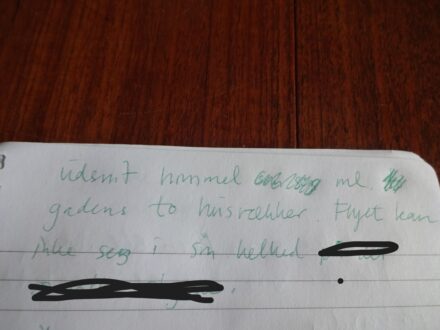 udsnit himmel ml.
gadens to husrækker. Flyet kan
ikke ses i sin helhed